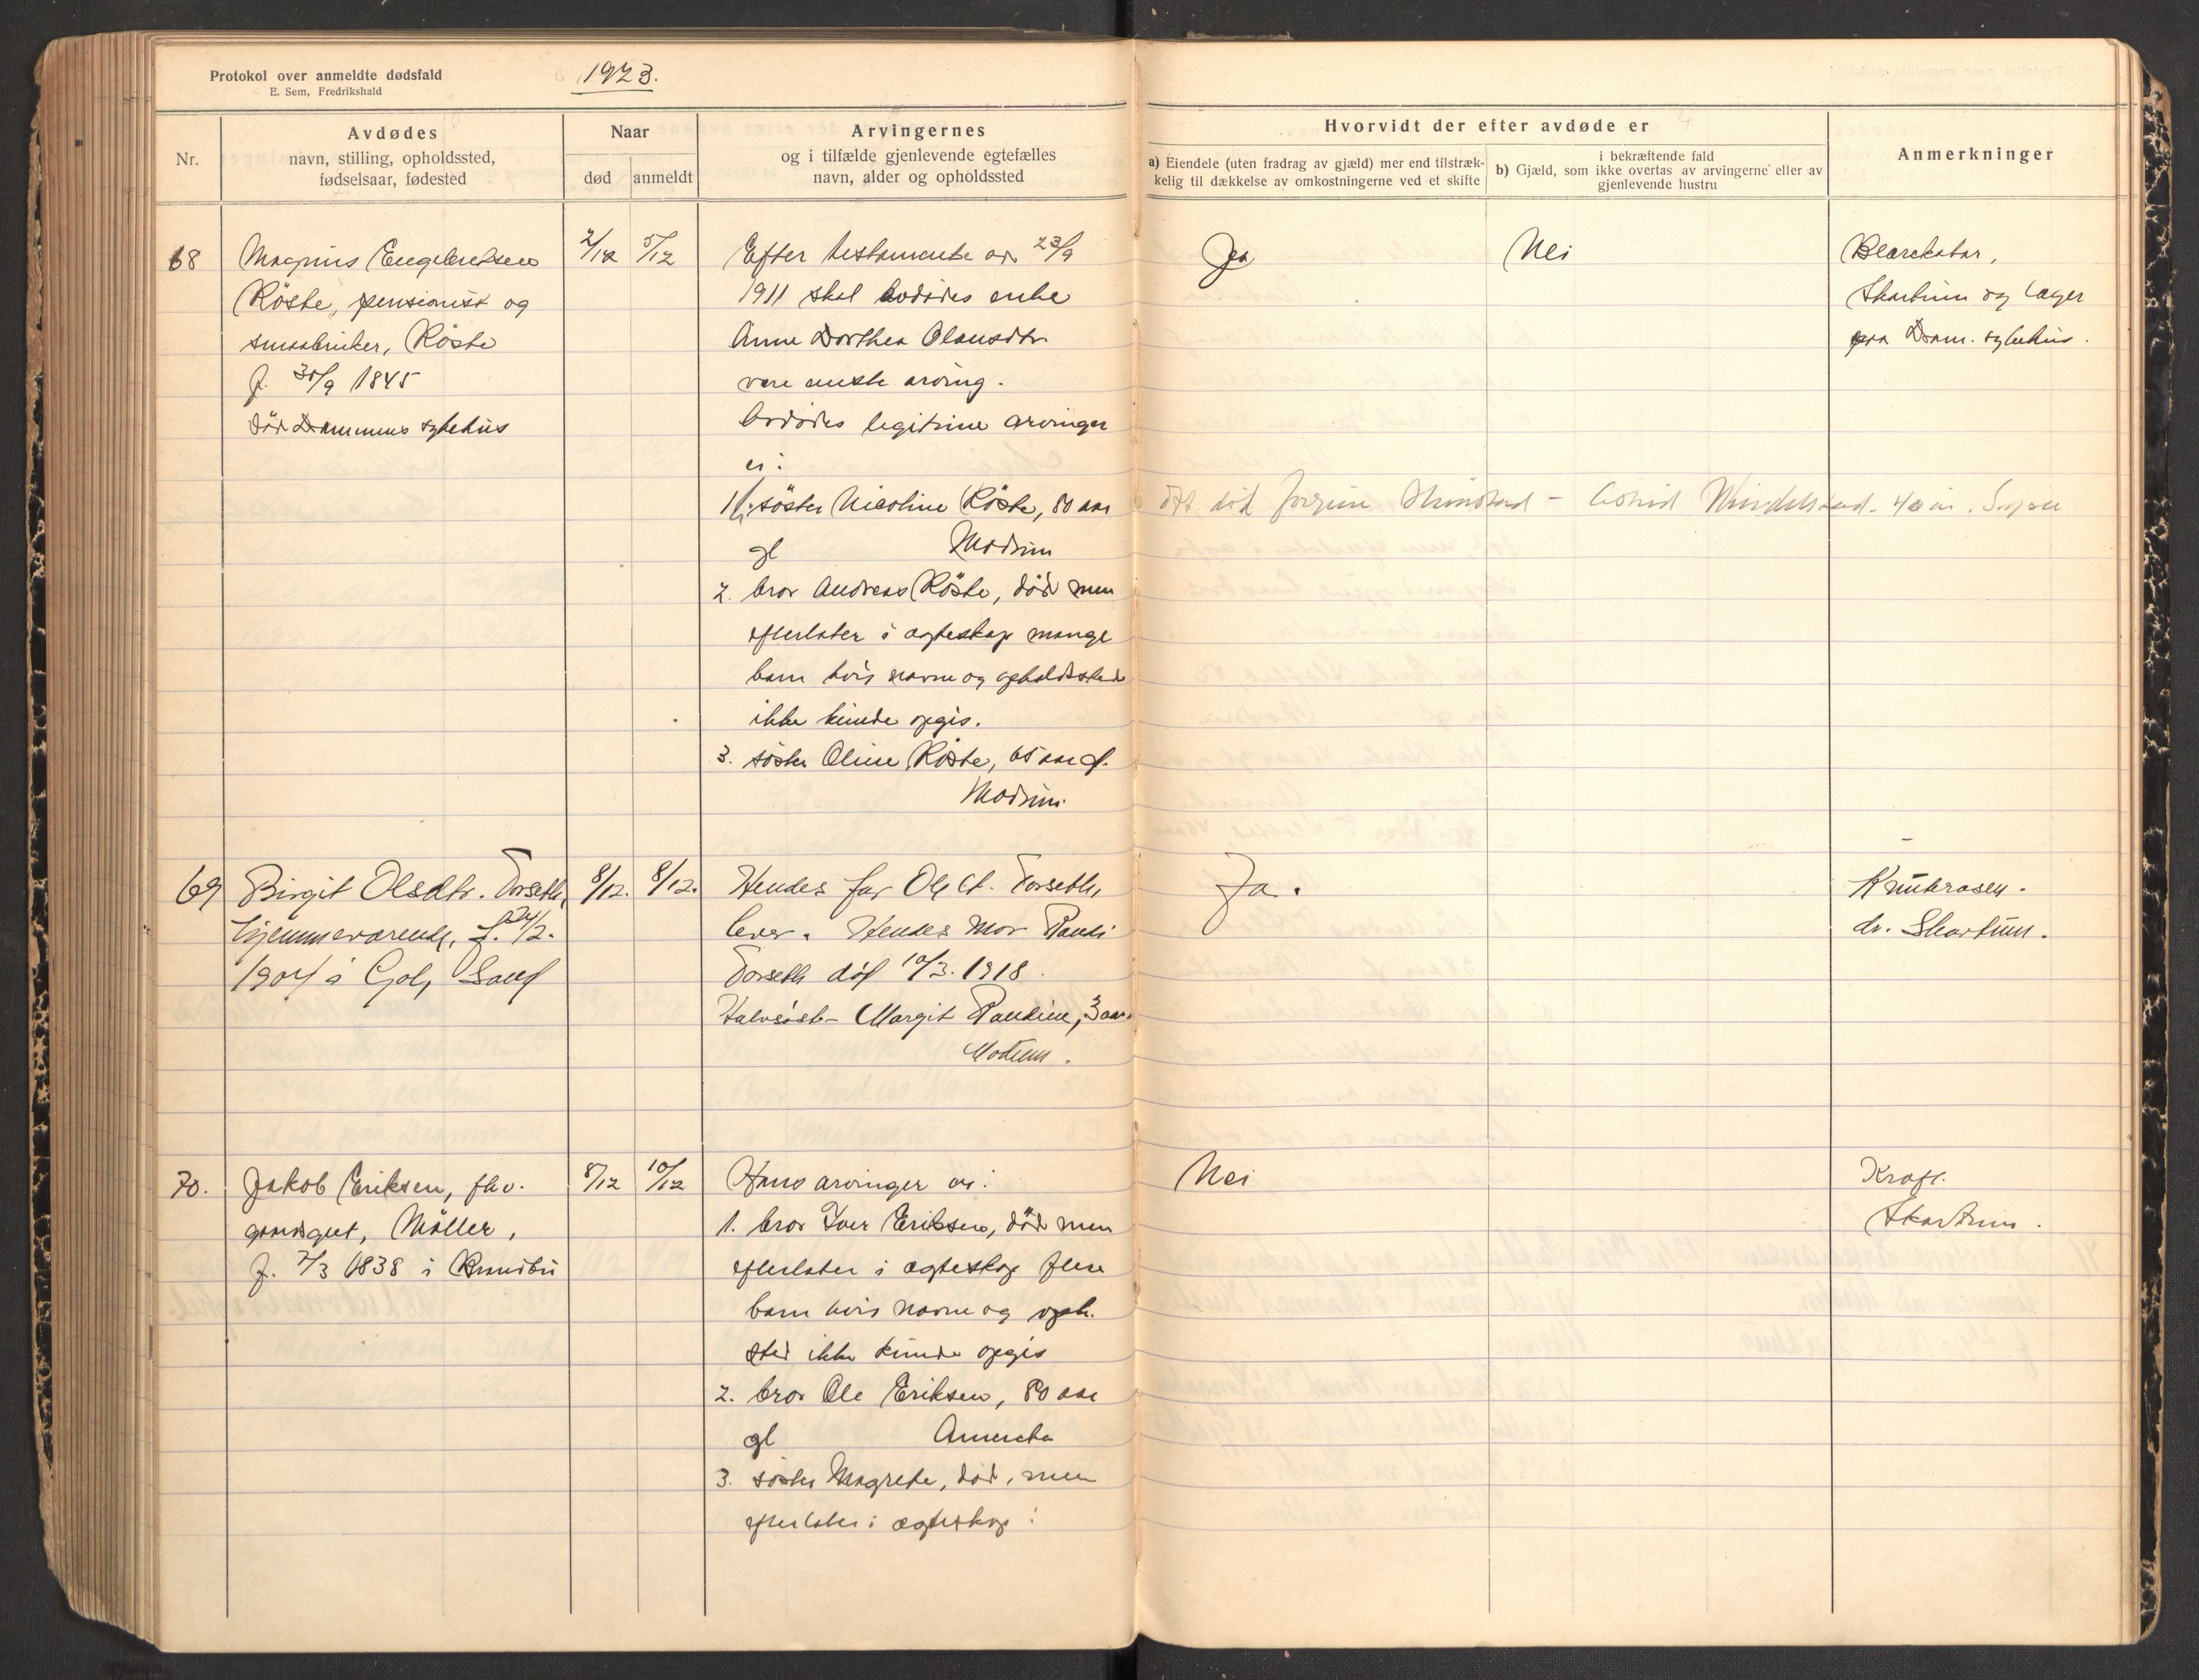 Protokol over anmeldte dødsfald
E. Sem, Fredrikshald
1923.
Nr.
Avdødes
navn, stilling, opholdssted,
fødselsaar, fødested
Naar
død
anmeldt
Arvingernes
og i tilfælde gjenlevende egtefælles
navn, alder og opholdssted
Hvorvidt der efter avdøde er
a) Eiendele (uten fradrag av gjæld) mer end tilstræk-
kelig til dækkelse av omkostningerne ved et skifte
i bekræftende fald
b) Gjæld, som ikke overtas av arvingerne eller av
gjenlevende hustru
Anmerkninger
68
Magnus Engebretsen
Röste, pensionist og
smaabruker, Röste
f. 30/9 1845
död Drammens sykehus
2/12
5/12
Efter testamente av 23/9
1911 skal avdödes enke
Anne Dorthea Olausdtr.
være eneste arving.
Avdödes legitime arvinger
er:
1. söster Nicoline Röste, 80 aar
gl Modum
2. bror Andreas Röste, död men
efterlater i ægteskap mange
barn hvis navne og opholdssted
ikke kunde opgis.
3. söster Oline Röste, 65 aar gl.
Modum.
Ja
Nei
Blærekatar,
Skartum og læger
paa Dram. sykehus.
död
69
Birgit Olsdtr. Torseth,
hjemmeværende, f. 24/2.
1904 i Gol,
8/12.
8/12.
Hendes far Ole A. Torseth,
lever. Hendes mor Randi
Torseth död 10/3. 1918.
Halvsöst- Margit Randine, 3 aar.
Modum.
Ja.
Knuterosen.
dr. Skartum.
70.
Jakob Eriksen, fhv.
gaardsgut, Möller,
f. 7/3 1838 i Brandbu
8/12
10/12
Hans arvinger er:
1. bror Iver Eriksen, död men
efterlater i ægteskap flere
barn hvis navne og oph.
sted ikke kunde opgis
2. bror Ole Eriksen, 80 aar
gl Amerika
3. söster Magrete, död, men
efterlater i ægteskap:
Nei
Kræft.
Skartum.